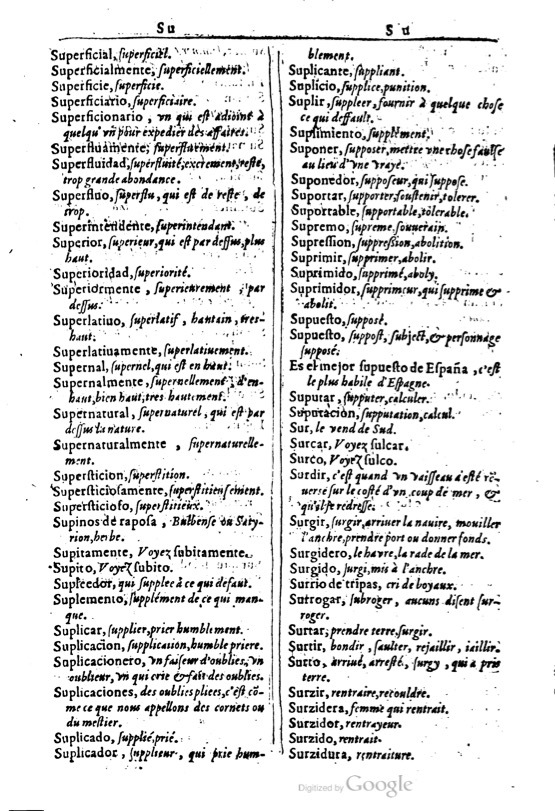 Su
Superficial, superficiel.
Superficialmente, superficiellement.
Superficie, superficie.
Superficiario, superficiaire.
Superficionario, vn qui est adioint à
quelqu'vn pour expedier des affaires.
Superfluamente, superfluement.
Superfluidad, superfluité, excrement, reste,
trop grande abondance.
Superfluo, superflu, qui est de reste, de
trop.
Superintendente, superintendant.
Superior, superieur, qui est par dessus, plus
haut.
Superioridad, superiorité.
Superiormente, superieurement, par
dessus.
Superlatiuo, superlatif, hautain, tres-
haut.
Superlatiuamente, superlatiuement.
Supernal, supernel, qui est en haut.
Supernalmente, supernellement, d'en-
haut, bien haut, tres hautement.
Supernatural, supernaturel, qui est par
dessus la nature.
Supernaturalmente, supernaturelle-
ment.
Supersticion, superstition.
Supersticiosamente, superstitieusement.
Supersticioso, superstitieux.
Supinos de raposa, Bulbense ou Saty-
rion, herbe.
Supitamente, Voyez subitamente.
Supito, Voyez subito.
Supleedor, qui supplee à ce qui defaut.
Suplemento, supplément de ce qui man-
que.
Suplicar, supplier, prier humblement.
Suplicacion, supplication, humble priere.
Suplicacionero, vn faiseur d'oublies, vn
oublieur, vn qui crie & fait des oublies.
Suplicaciones, des oublies pliees, c'est cõ-
me ce que nous appellons des cornets ou
du mestier.
Suplicado, supplié, prié.
Suplicador, supplieur, qui prie hum-
Su
blement.
Suplicante, suppliant.
Suplicio, supplice, punition.
Suplir, suppleer, fournir à quelque chose
ce qui deffault.
Suplimiento, supplément.
Suponer, supposer, mettre vne chose faulse
au lieu d'vne vraye.
Suponedor, supposeur, qui suppose.
Suportar, supporter, soustenir, tolerer.
Suportable, supportable, tolerable.
Supremo, supreme, souuerain.
Supression, suppression, abolition.
Suprimir, supprimer, abolir.
Suprimido, supprimé, aboly.
Suprimidor, supprimeur, qui supprime &
abolit.
Supuesto, supposé.
Supuesto, suppost, subject, & personnage
supposé.
Es el mejor supuesto de España, c'est
le plus habile d'Espagne.
Suputar, supputer, calculer.
Suputacion, supputation, calcul.
Sur, le vend de Sud.
Surcar, Voyez sulcar.
Surco, Voyez sulco.
Surdir, c'est quand vn vaisseau a esté ré-
uersé sur le costé d'vn coup de mer, &
qu'il se redresse.
Surgir, surgir, arriuer la nauire, mouiller
l'anchre, prendre port ou donner fonds.
Surgidero, le havre, la rade de la mer.
Surgido, surgi, mis à l'anchre.
Surrio de tripas, cri de boyaux.
Surrogar, subroger, aucuns disent sur-
roger.
Surtar, prendre terre, surgir.
Surtir, bondir, saulter, rejaillir, iaillir.
Surto, arriué, arresté, surgy, qui a pris
terre.
Surzir, rentraire, recouldre.
Surzidera, femme qui rentrait.
Surzidor, rentrayeur.
Surzido, rentrait.
Surzidura, rentraiture.
Digitized by Google